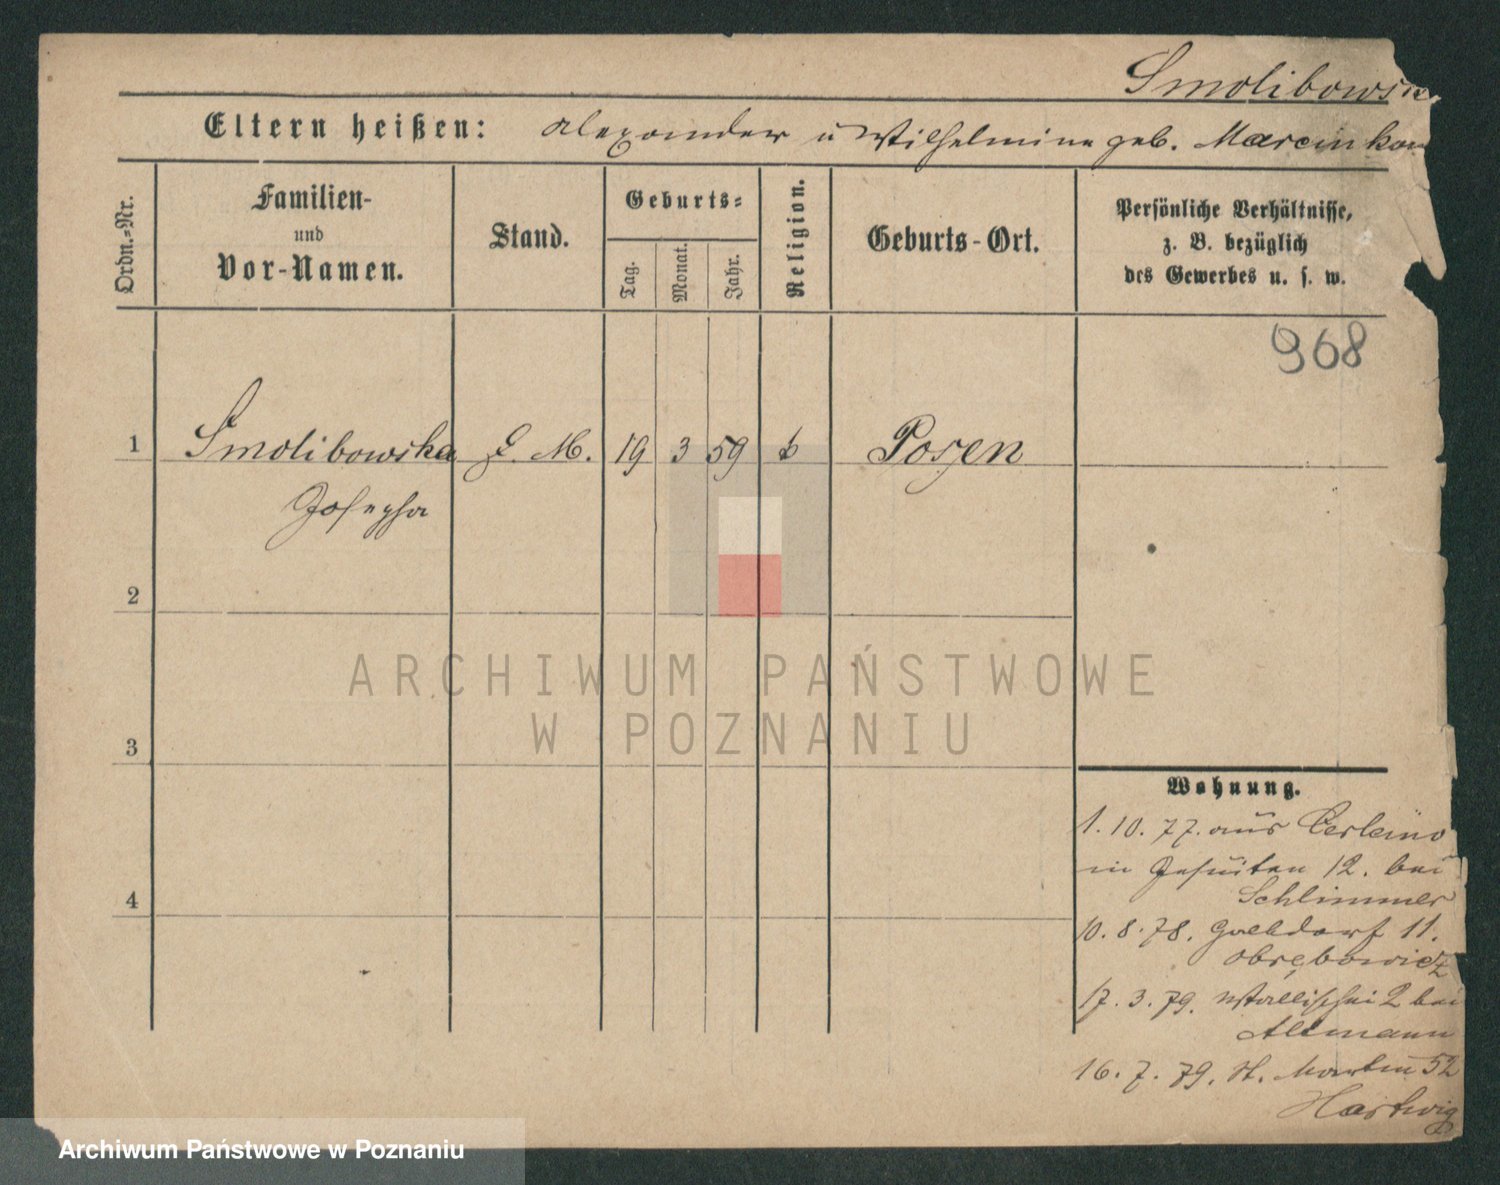 Smolibowsk
Eltern heißen: Alexander u Wilhelmine geb. Marcinkow
Ordn.-Nr.
Familien-
und
Vor-Namen.
Stand.
Geburts-
Tag.
Monat.
Jahr.
Religion.
Geburts-Ort.
Persönliche Verhältnisse,
z. B. bezüglich
des Gewerbes u. s. w.
968
1 Smolibowska D. M. 19 3 59 k Posen
Josepha
2
3
4
Wohnung.
1. 10. 77. aus
in Jesuiten 12. bei
Schlimmer
10. 8. 78. 11.
Obrębowicz
17. 3. 79. Wallischei 2 bei
Altmann
16. 7. 79. St. Martin 52
Hartwig
ARCHIWUM PAŃSTWOWE
W POZNANIU
Archiwum Państwowe w Poznaniu